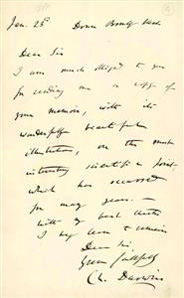 Jan. 23d Down Bromley Kent
Dear Sir
I am much obliged to you
for sending me a copy of
your memoir, with its
wonderfully beautiful
illustrations, on the most
interesting scientific
which has occurred
for many years. —
With my best thanks
I beg leave to remain
Dear Sir,
Yours faithfully
Ch. Darwin